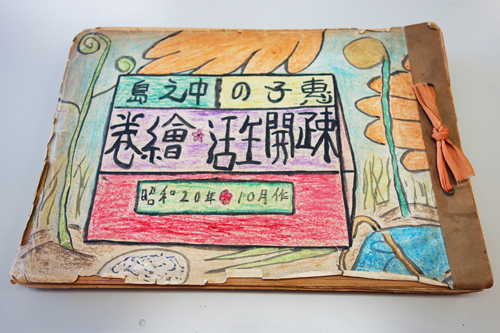 惠子の中之島
疎開生活繪卷
昭和20年10月作